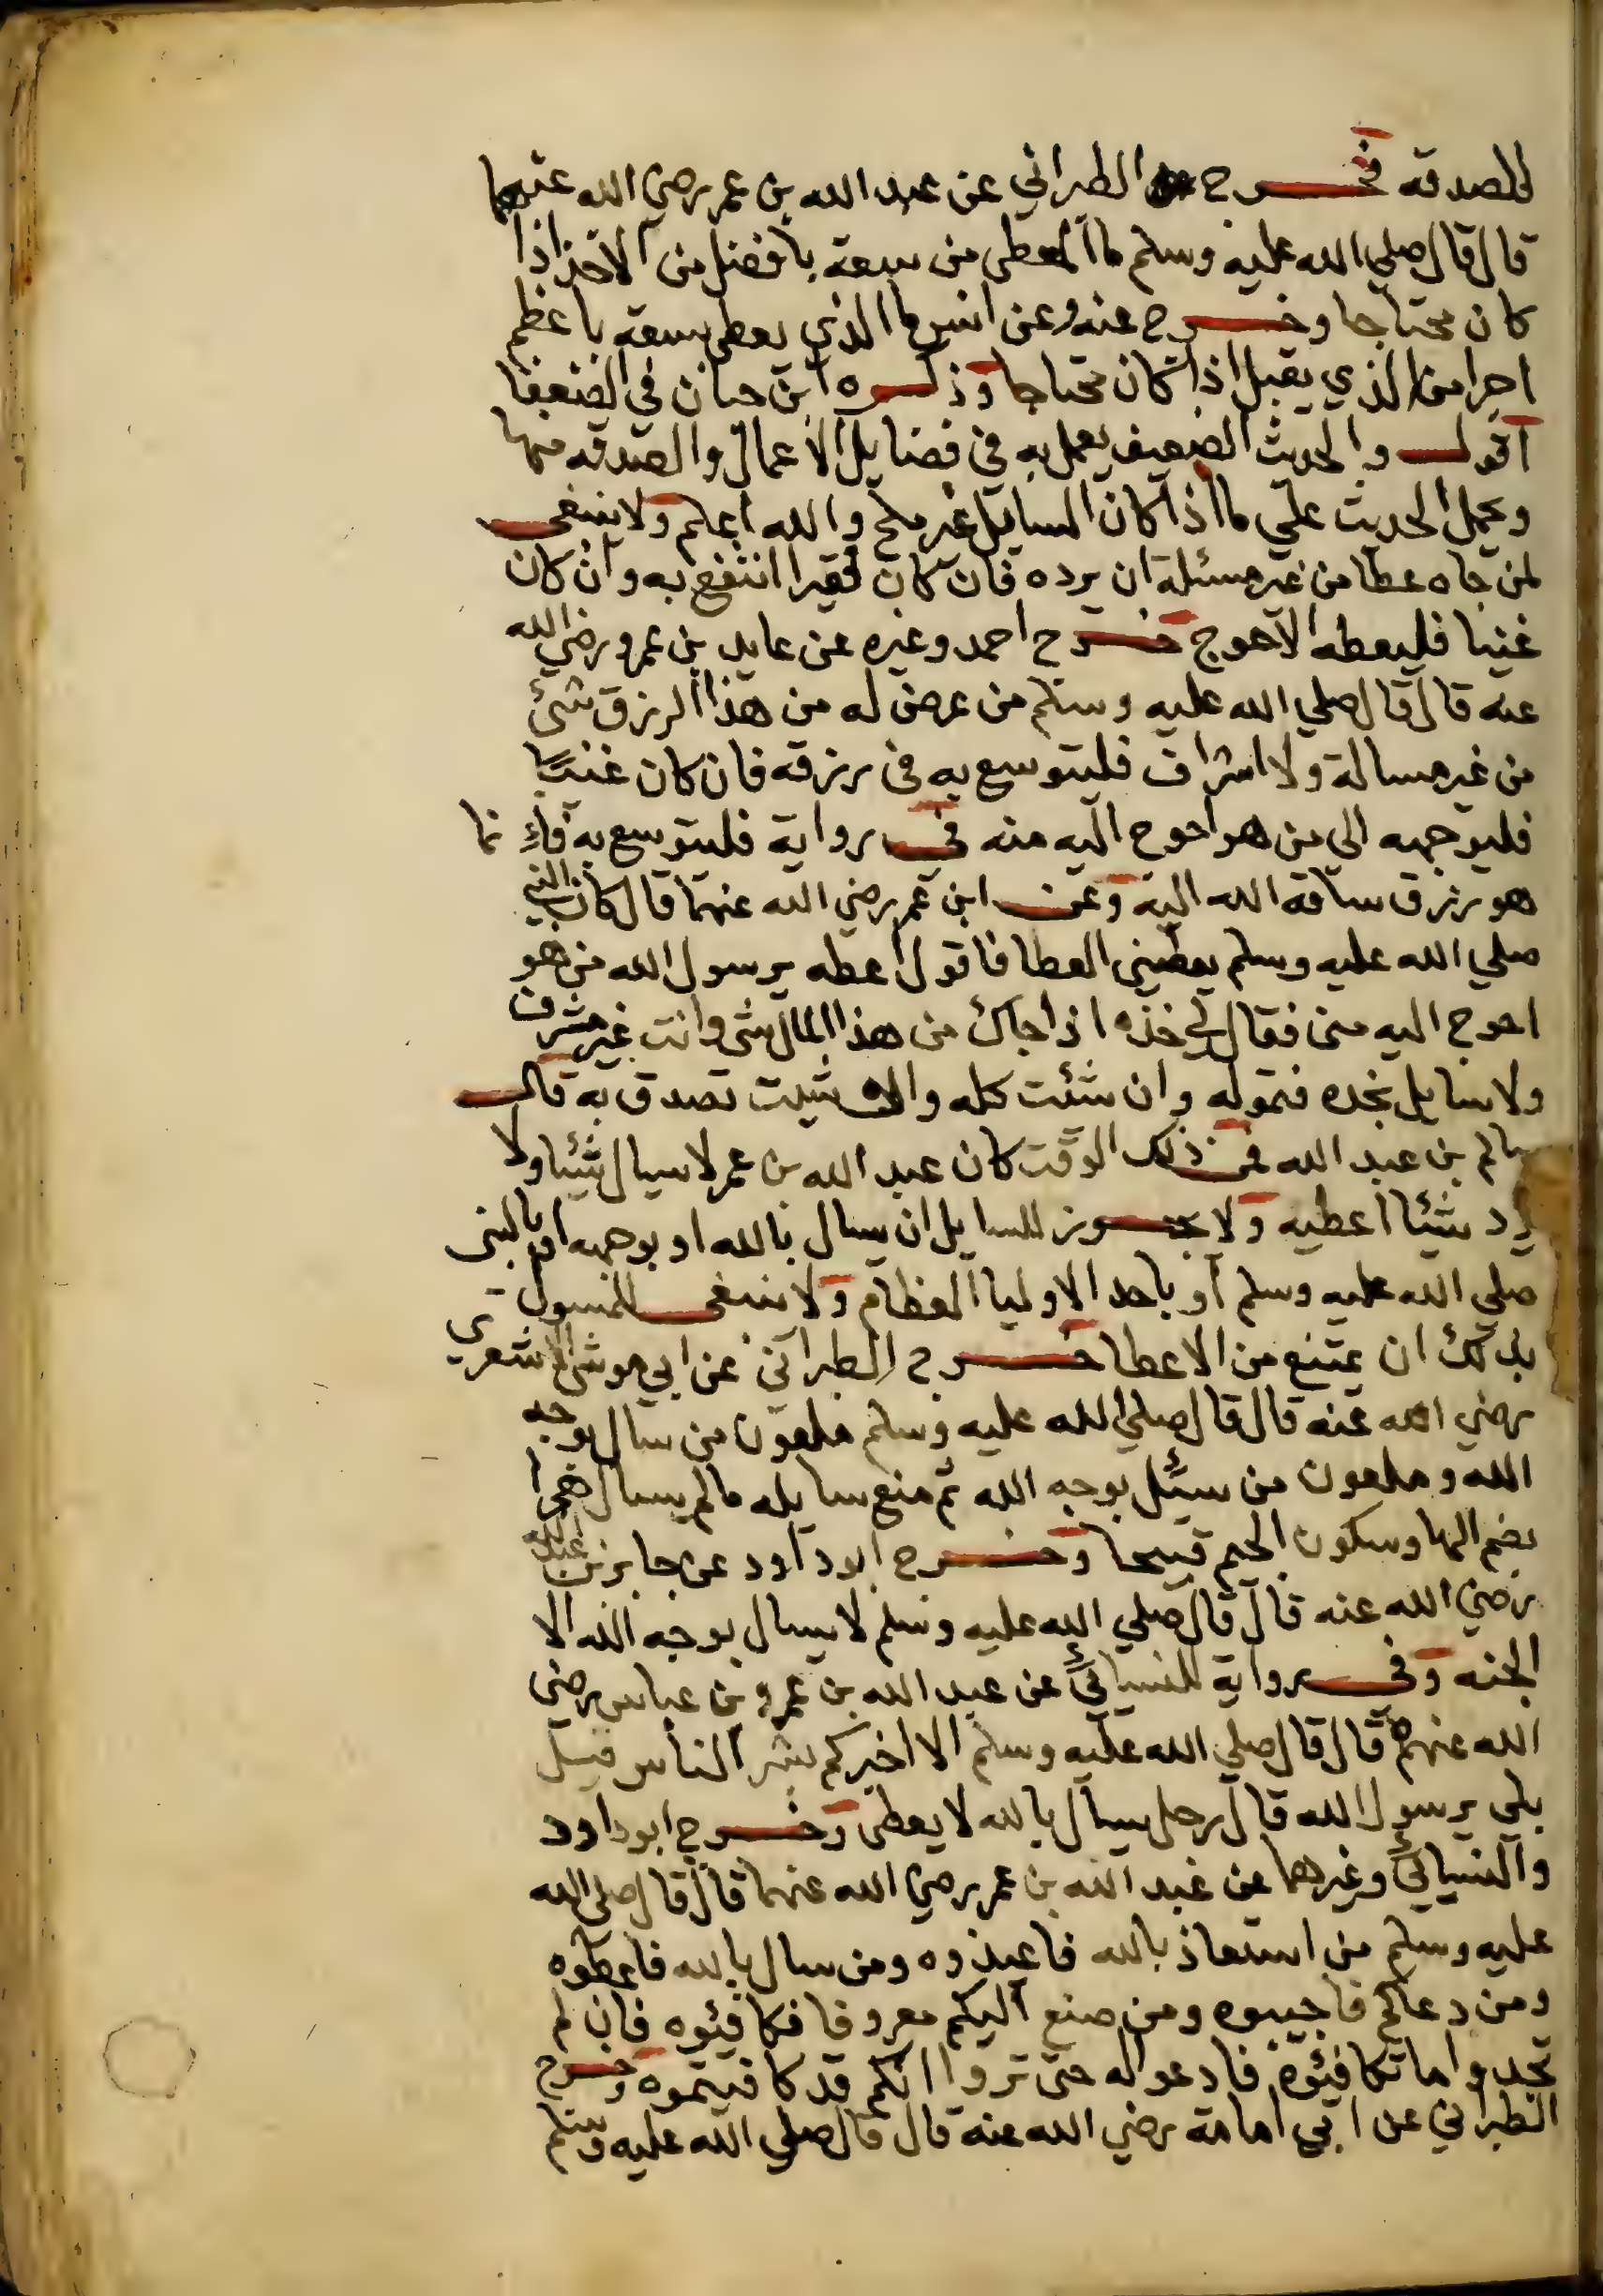 للصدقة فخرج الطبراني عن عبد الله بن عمر رضي الله عنهما
قال قال صلي الله عليه وسلم ما المعطي من سعة بافضل من الاخذ اذا
كان محتاجا وخرج عنه وعن انس ما الذي يعطي بسعة باعظم
اجرا من الذي يقبل اذا كان محتاجا وذكره ابن حبان في الضعفا
اقول والحديث الضعيف يعمل به في فضايل الاعمال والصدقه منها
ويحمل الحديث علي ما اذا كان السايل غير ملح والله اعلم ولا ينبغي
لمن جاه عطا من غير مسئلة ان يرده فان كان فقيرا انتفع به وان كان
غنيا فليعطه الاحوج خرج احمد وغيره عن عايد بن عمرو رضي الله
عنه قال قال صلي الله عليه وسلم من عرض له من هذا الرزق شئ
من غير مسالة ولا اشراف فليتوسع به في رزقه فان كان غنيًا
فليوجهه الي من هو احوج اليه منه في رواية فليتوسع به فانما
هو رزق ساقه الله اليه وعن ابن عمر رضي الله عنهما قال كان النبي
صلي الله عليه وسلم يعطيني العطا فاقول اعطه يرسول الله من هو
احوج اليه مني فقال لي خذه اذا جاك من هذا المال شي وانت غير مشرف
ولا سايل فخده فتموله وان شئت كله وان شيت تصدق به قال
سالم بن عبد الله فمن ذلك الوقت كان عبد الله بن عمر لا سيال شيئا ولا
يرد شئيا اعطيه ولا يجوز للسايل ان يسال بالله او بوجهه او بالنبي
صلي الله عليه وسلم او باحد الاوليا العظام ولا ينبغي للمسول
بذلك ان يمتنع من الاعطا خرج الطبراني عن ابي موسي الاشعري
رضي الله عنه قال قال صلي الله عليه وسلم ملعون من سال بوجه
الله وملعون من سئل بوجه الله ثم منع سايله ما لم يسال هجرا
بضم الها وسكون الجيم قبيحا وخرج ابو داود عن جابر بن عبد الله
رضي الله عنه قال قال صلي الله عليه وسلم لا يسال بوجه الله الا
الجنه وفي رواية للنسيائي عن عبد الله بن عمرو بن عباس رضي
الله عنهم قال قال صلي الله عليه وسلم الا اخبركم بشر الناس قيل
بلي يرسول الله قال رجل يسال بالله لا يعطي وخرج ابو داود
والنسيائي وغيرهما عن عبد الله بن عمر رضي الله عنهما قال قال صلي الله
عليه وسلم من استعاذ بالله فاعيذوه ومن سال بالله فاعطوه
ومن دعاكم فاجيبوه ومن صنع اليكم معروفا فكافئوه فان لم
تجدوا ما تكافئوه فادعوا له حتى تروا انكم قد كافيتموه وخرج
الطبراني عن ابي امامة رضي الله عنه قال قال صلي الله عليه وسلم